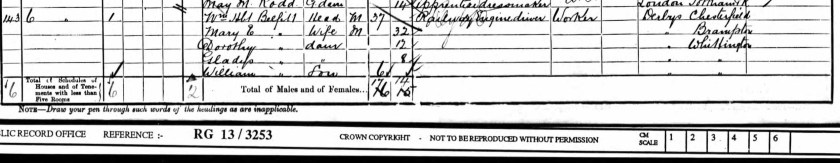 May M. Rodd Gdau 14 Apprentice dressmaker London
143 6 " 1 Wm Hbt Head M 37 Railway Engine driver Worker Derbys Chesterfield
Mary E. " Wife M 32 " Brampton
Dorothy " daur 12 " Whittington
Gladys " " 8 " "
William " Son 6 " "
6 Total of Schedules of Houses and of Tenements with less than Five Rooms 6 2 Total of Males and of Females... 16 15
NOTE—Draw your pen through such words of the headings as are inapplicable.
LIC RECORD OFFICE REFERENCE :- RG 13/3253 CROWN COPYRIGHT - NOT TO BE REPRODUCED WITHOUT PERMISSION CM SCALE 1 2 3 4 5 6